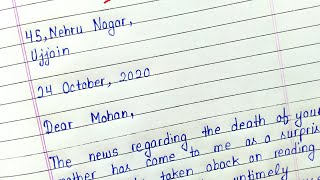 45, Nehru Nagar,
Ujjain
24 October, 2020
Dear Mohan,
The news regarding the death of your
has come to me as a surprise
taken aback on reading
untimely